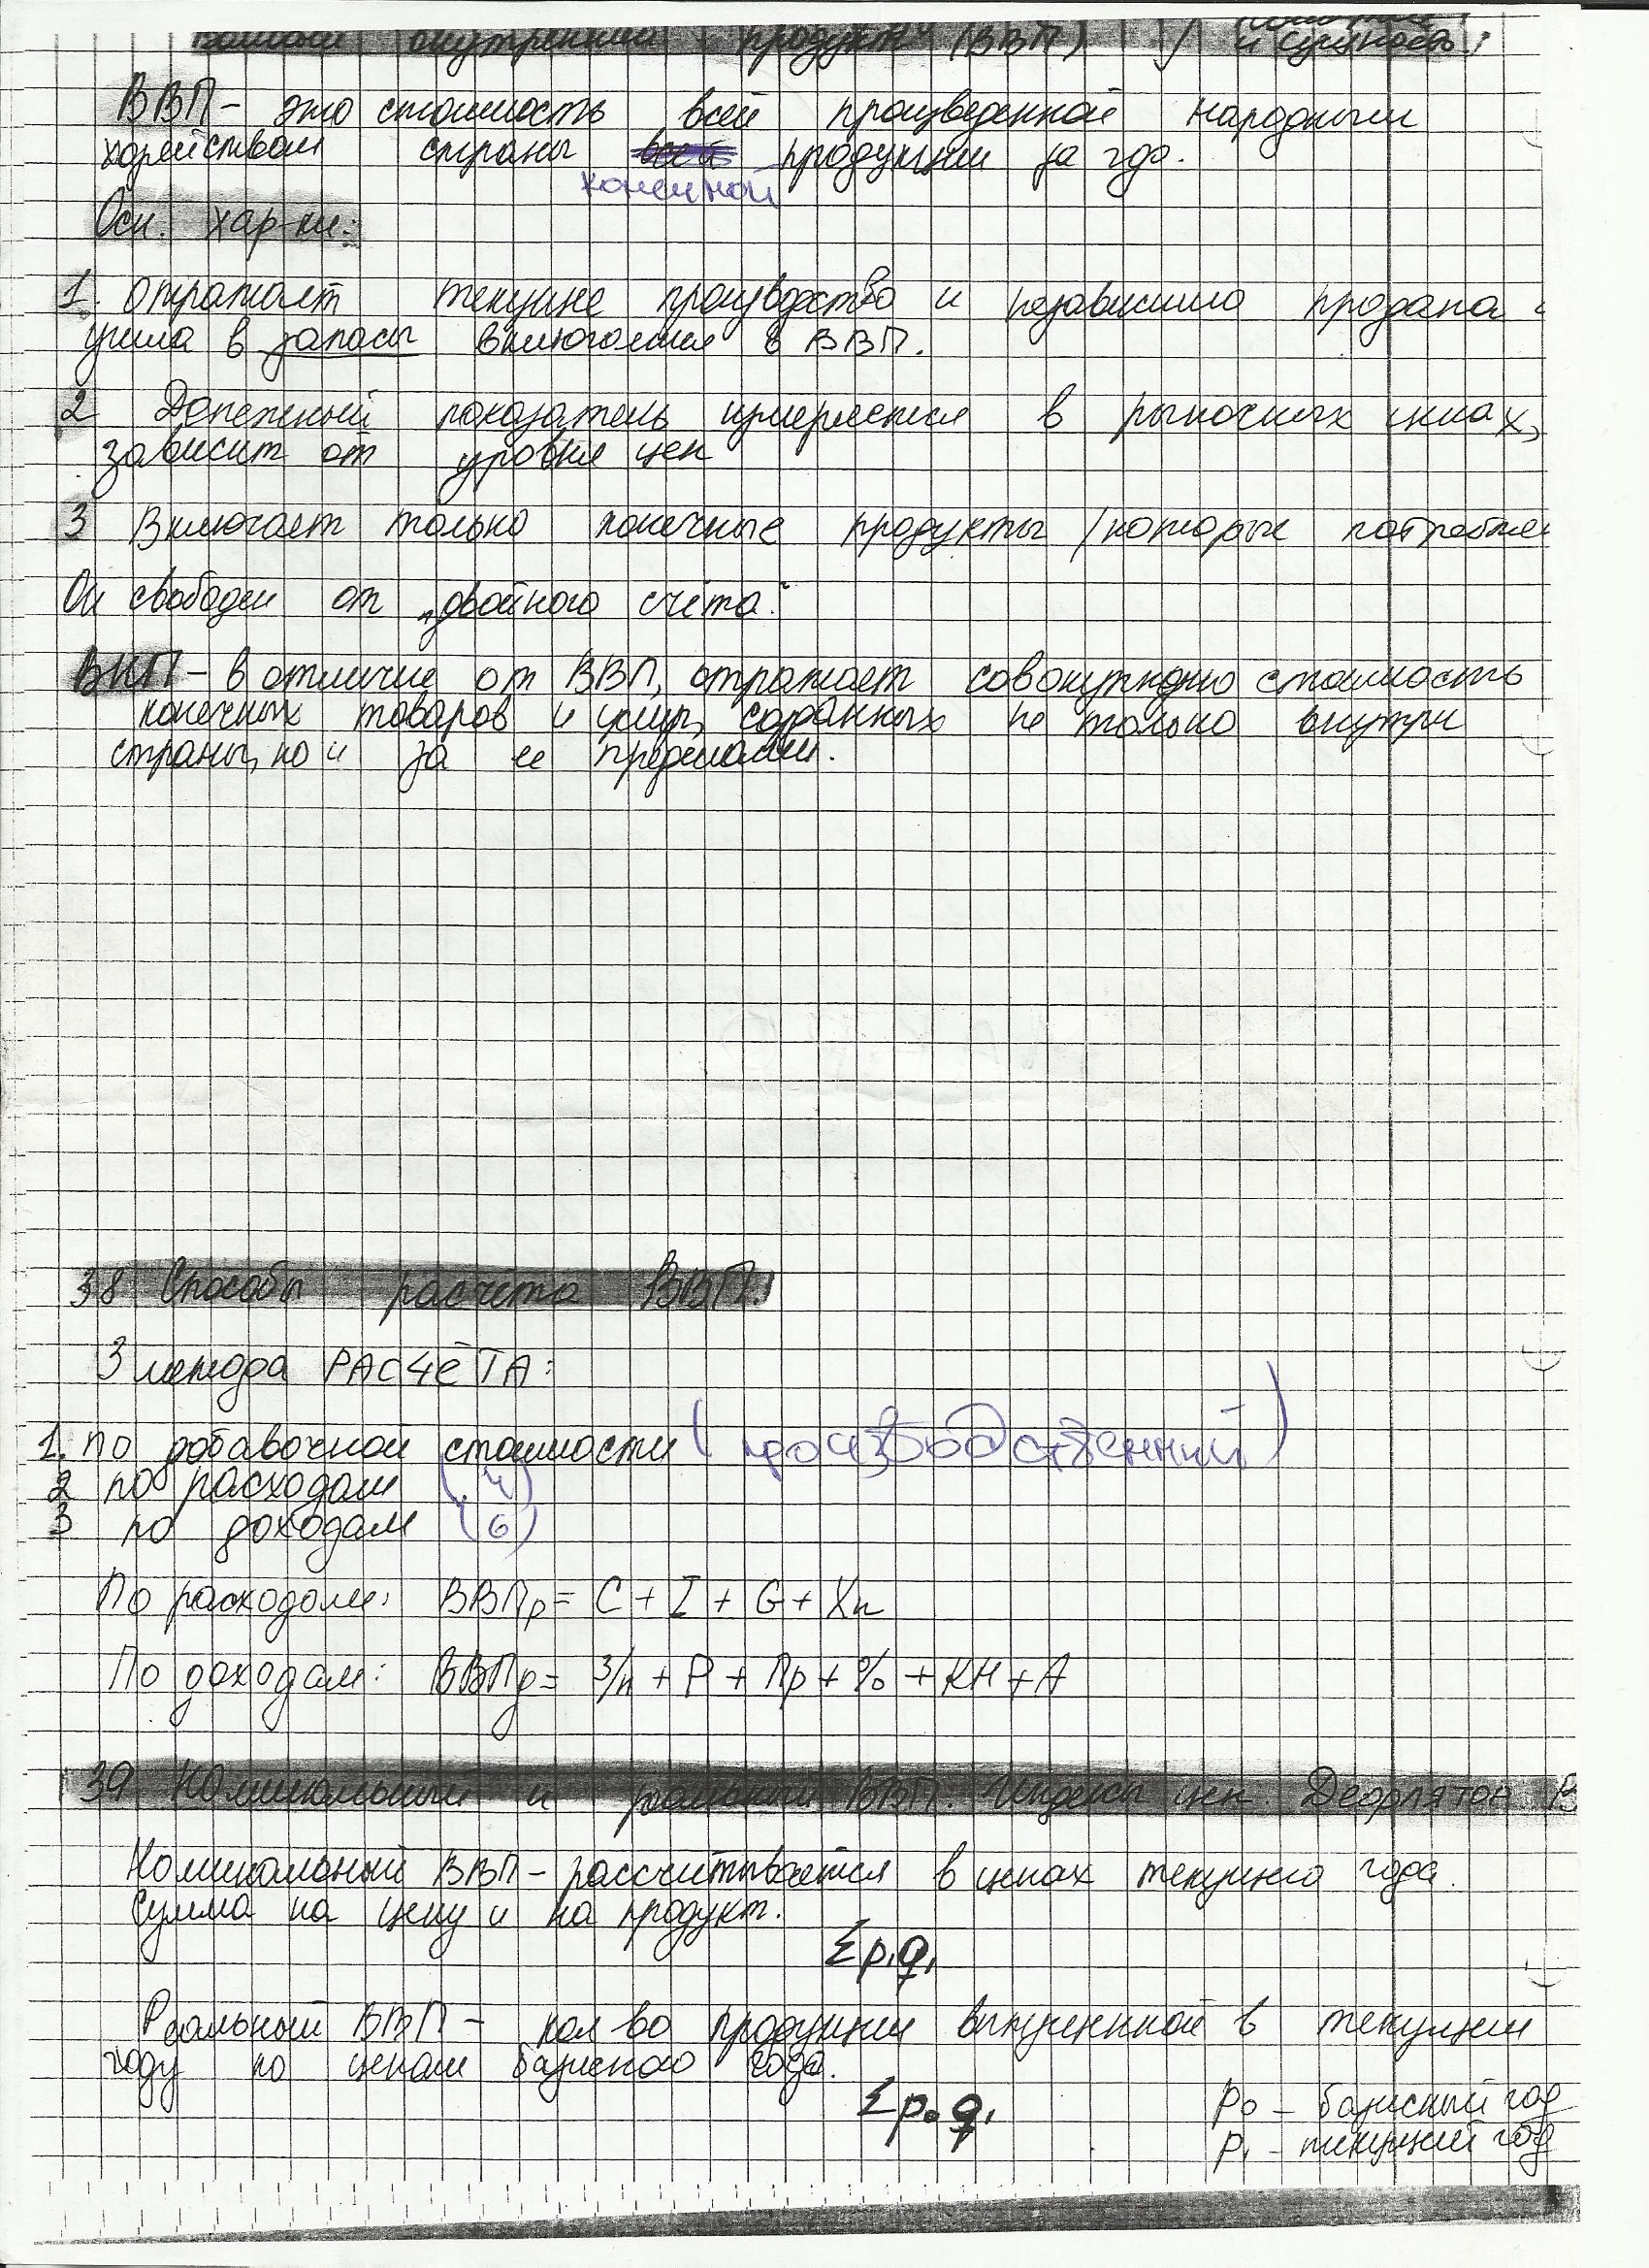 Валовый внутренний продукт (ВВП) понятие
и сущность.
ВВП – это стоимость всей произведенной народным
хозяйством страны продукции за год.
конечной
Осн. хар-ки:
1. отражает текущие производство и независимо продана
ушла в запасы включается в ВВП.
2 Денежный показатель измеряется в рыночных ценах,
зависит от уровня цен
3 Включает только конечные продукты /которые потребле
Он свободен от „двойного счёта."
ВНП – в отличие от ВВП, отражает совокупную стоимость
конечных товаров и услуг, созданных не только внутри
страны, но и за ее пределами.
38 Способы расчёта ВВП.
3 метода РАСЧёТА:
1. по добавочной стоимости (производственный)
2 по расходам (4)
3 по доходам (6)
По расходам: ВВПр = C + I + G + Xn
По доходам: ВВПд = З/п + Р + Пр + % + КН + А
39 Номинальный и реальный ВВП. Индексы цен. Дефлятор В
Номинальный ВВП – рассчитывается в ценах текущего года.
Сумма на цену и на продукт.
Σp₁q₁
Реальный ВВП – кол-во продукции выпущенной в текущем
году по ценам базисного года.
Σp₀q₁
P₀ – базисный год
P₁ – текущий год